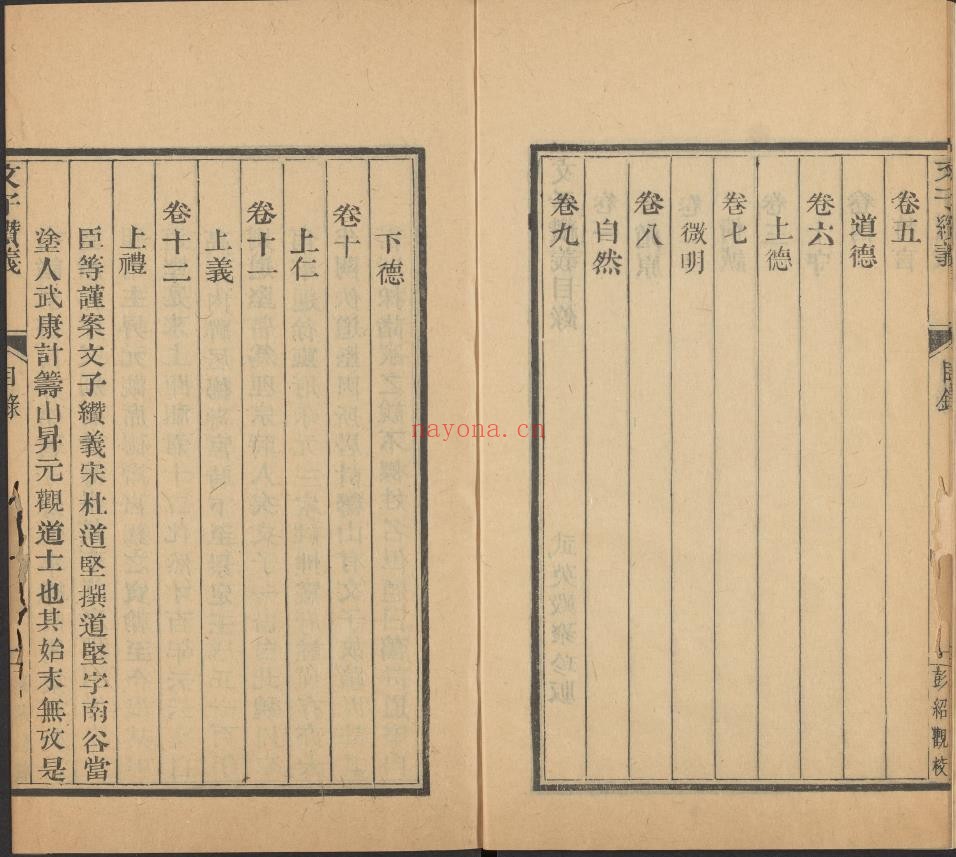 文子纘義
目錄
彭紹觀校
卷五
道德
卷六
上德
卷七
微明
卷八
自然
卷九
下德
卷十
上仁
卷十一
上義
卷十二
上禮
臣等謹案文子纘義宋杜道堅撰道堅字南谷當
塗人武康計籌山昇元觀道士也其始末無攷是
文子纘義
目錄
nayona.cn